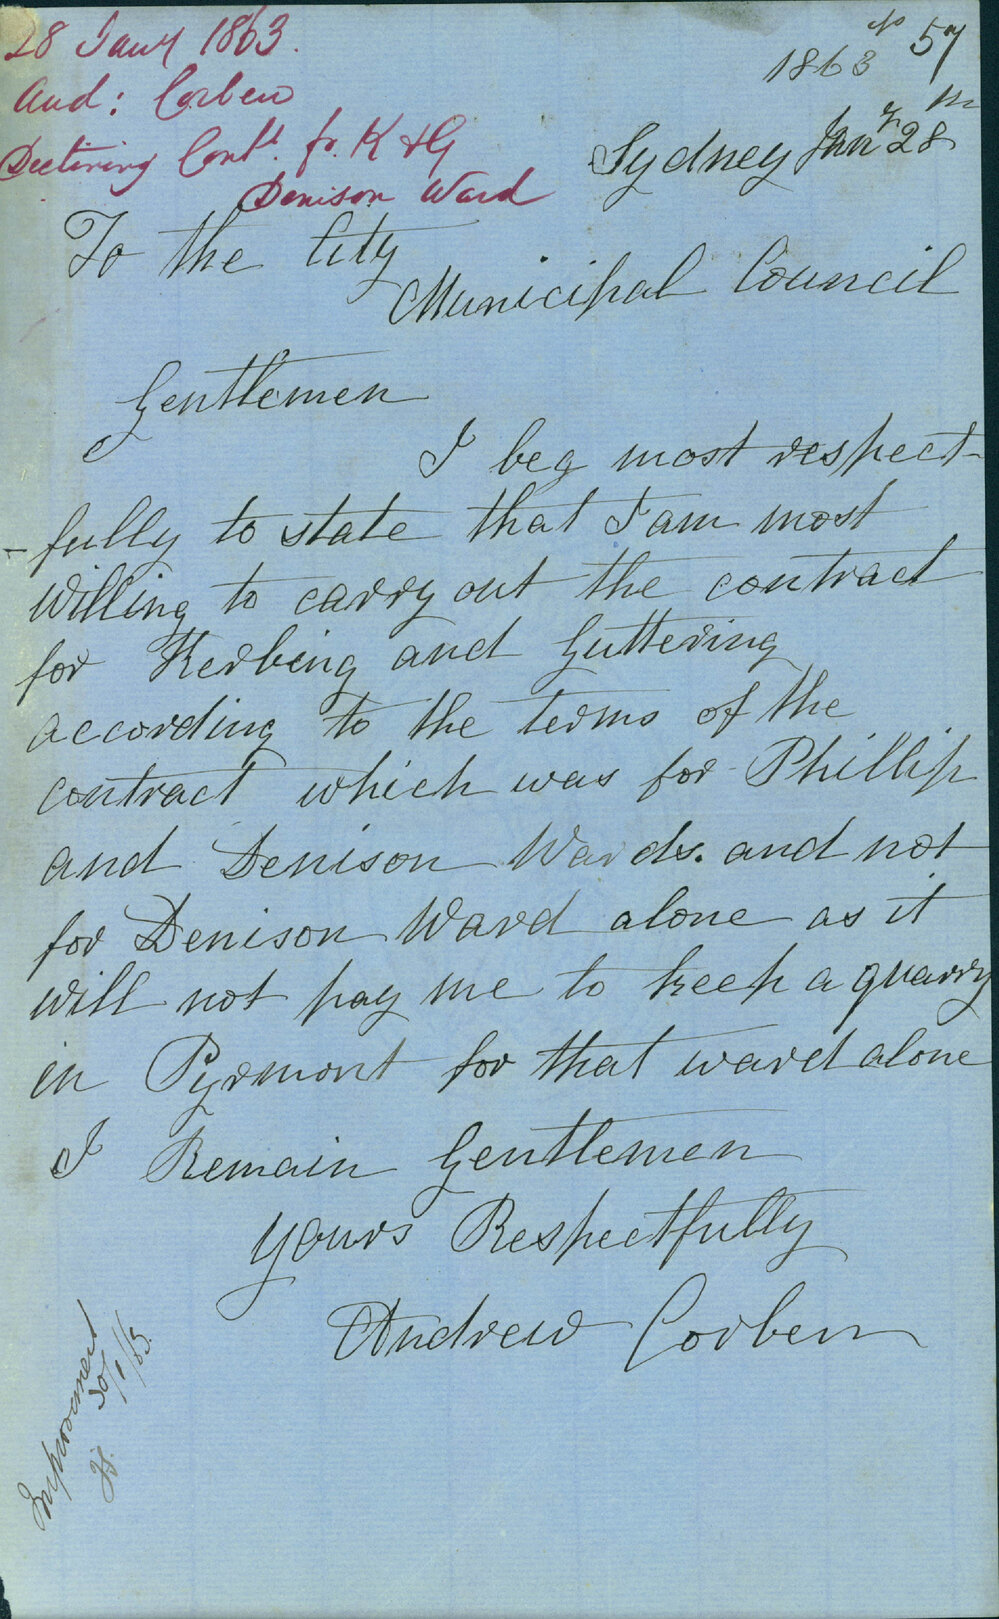 28 Jany 1863.
And: Corben
Declining Cont. for K & G
Denison Ward
No 57
1863
Sydney Jany 28th
To the City
Municipal Council
Gentlemen
I beg most respect-
-fully to state that I am most
willing to carry out the contract
for Kerbing and Guttering
according to the terms of the
contract which was for Phillip
and Denison Wards. and not
for Denison Ward alone as it
will not pay me to keep a quarry
in Pyrmont for that ward alone
I Remain Gentlemen
yours Respectfully
Andrew Corben
Improvement
30/1/63